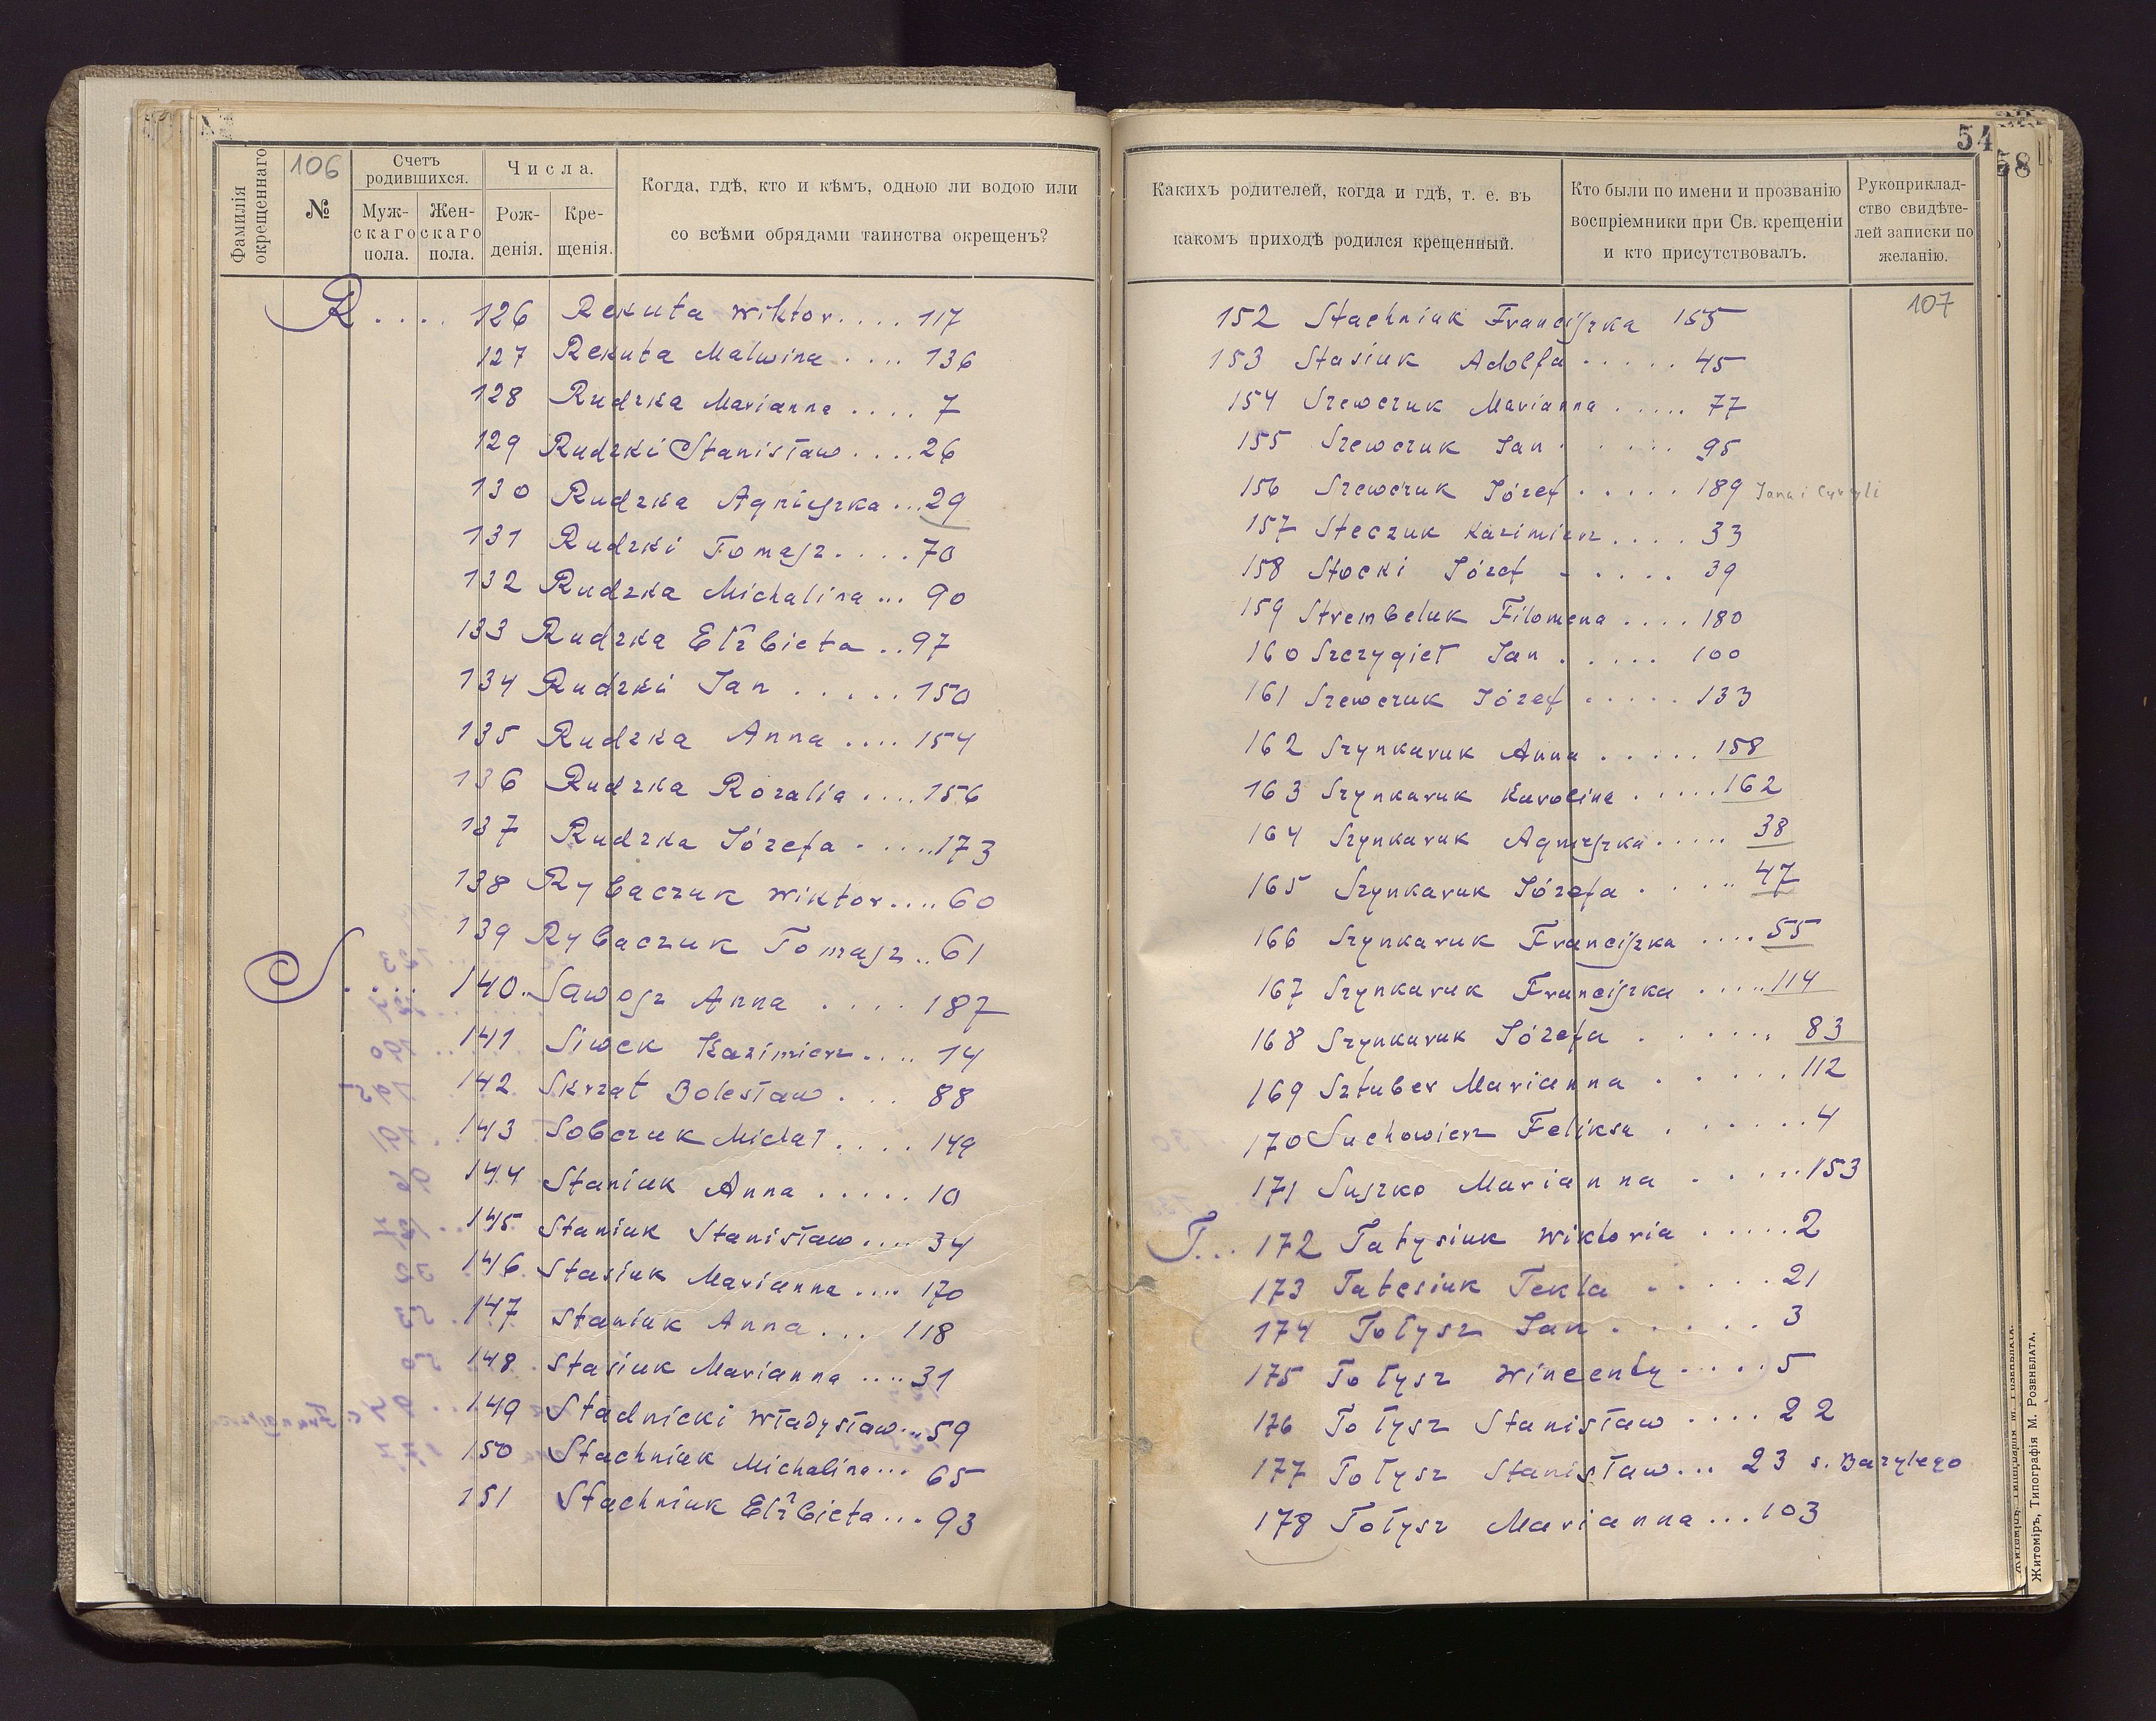 Фамилія окрещеннаго
106
№
Счетъ родившихся.
Муж-скаго пола.
Жен-скаго пола.
Числа.
Рож-денія.
Кре-щенія.
Когда, гдѣ, кто и кѣмъ, одною ли водою или
со всѣми обрядами таинства окрещенъ?
R.... 126 Rekuta Wiktor.... 117
127 Rekuta Malwina .... 136
128 Rudzka Marianna .... 7
129 Rudzki Stanisław....26
130 Rudzka Agnieszka...29
131 Rudzki Tomasz....70
132 Rudzka Michalina... 90
133 Rudzka Elżbieta ..97
134 Rudzki Jan .....150
135 Rudzka Anna .... 154
136 Rudzka Rozalia ....156
137 Rudzka Józefa .....173
138 Rybaczuk Wiktor....60
139 Rybaczuk Tomasz..61
S.... 140. Sawosz Anna .... 187
141 Siwek Kazimierz.... 14
142 Skrzat Bolesław.... 88
143 Sobczuk Michał.... 149
144 Staniuk Anna ..... 10
145 Staniuk Stanisław.... 34
146 Stasiuk Marianna .... 170
147 Staniuk Anna... 118
148 Stasiuk Marianna ....31
149 Stadnicki Władysław...59
150 Stachniuk Michalina... 65
151 Stachniuk Elżbieta... 93
54
58
Какихъ родителей, когда и гдѣ, т. е. въ
какомъ приходѣ родился крещенный.
Кто были по имени и прозванію
воспріемники при Св. крещеніи
и кто присутствовалъ.
Рукоприклад-
ство свидѣте-
лей записки по
желанію.
107
152 Stachniuk Franciszka 165
153 Stasiuk Adolfa ..... 45
154 Szewczuk Marianna ..... 77
155 Szewczuk Jan ..... 95
156 Szewczuk Józef ..... 189 Jana i Cyryli
157 Steczuk Kazimierz.... 33
158 Stocki Józef ..... 39
159 Strembeluk Filomena .... 180
160 Szczygieł Jan ..... 100
161 Szewczuk Józef ..... 133
162 Szynkaruk Anna ..... 158
163 Szynkaruk Karolina .....162
164 Szynkaruk Agnieszka..... 38
165 Szynkaruk Józefa ..... 47
166 Szynkaruk Franciszka ....55
167 Szynkaruk Franciszka .....114
168 Szynkaruk Józefa ..... 83
169 Sztuber Marianna .....112
170 Suchowierz Feliksa ......4
171 Suszko Marianna .....153
T... 172 Tatysiuk Wiktoria .....2
173 Tatesiuk Tekla .....21
174 Tołysz Jan ..... 3
175 Tołysz Wincenty.....5
176 Tołysz Stanisław .... 22
177 Tołysz Stanisław... 23 s. Bazylego
178 Tołysz Marianna...103
Житоміръ, Типографія М. Розенблата.